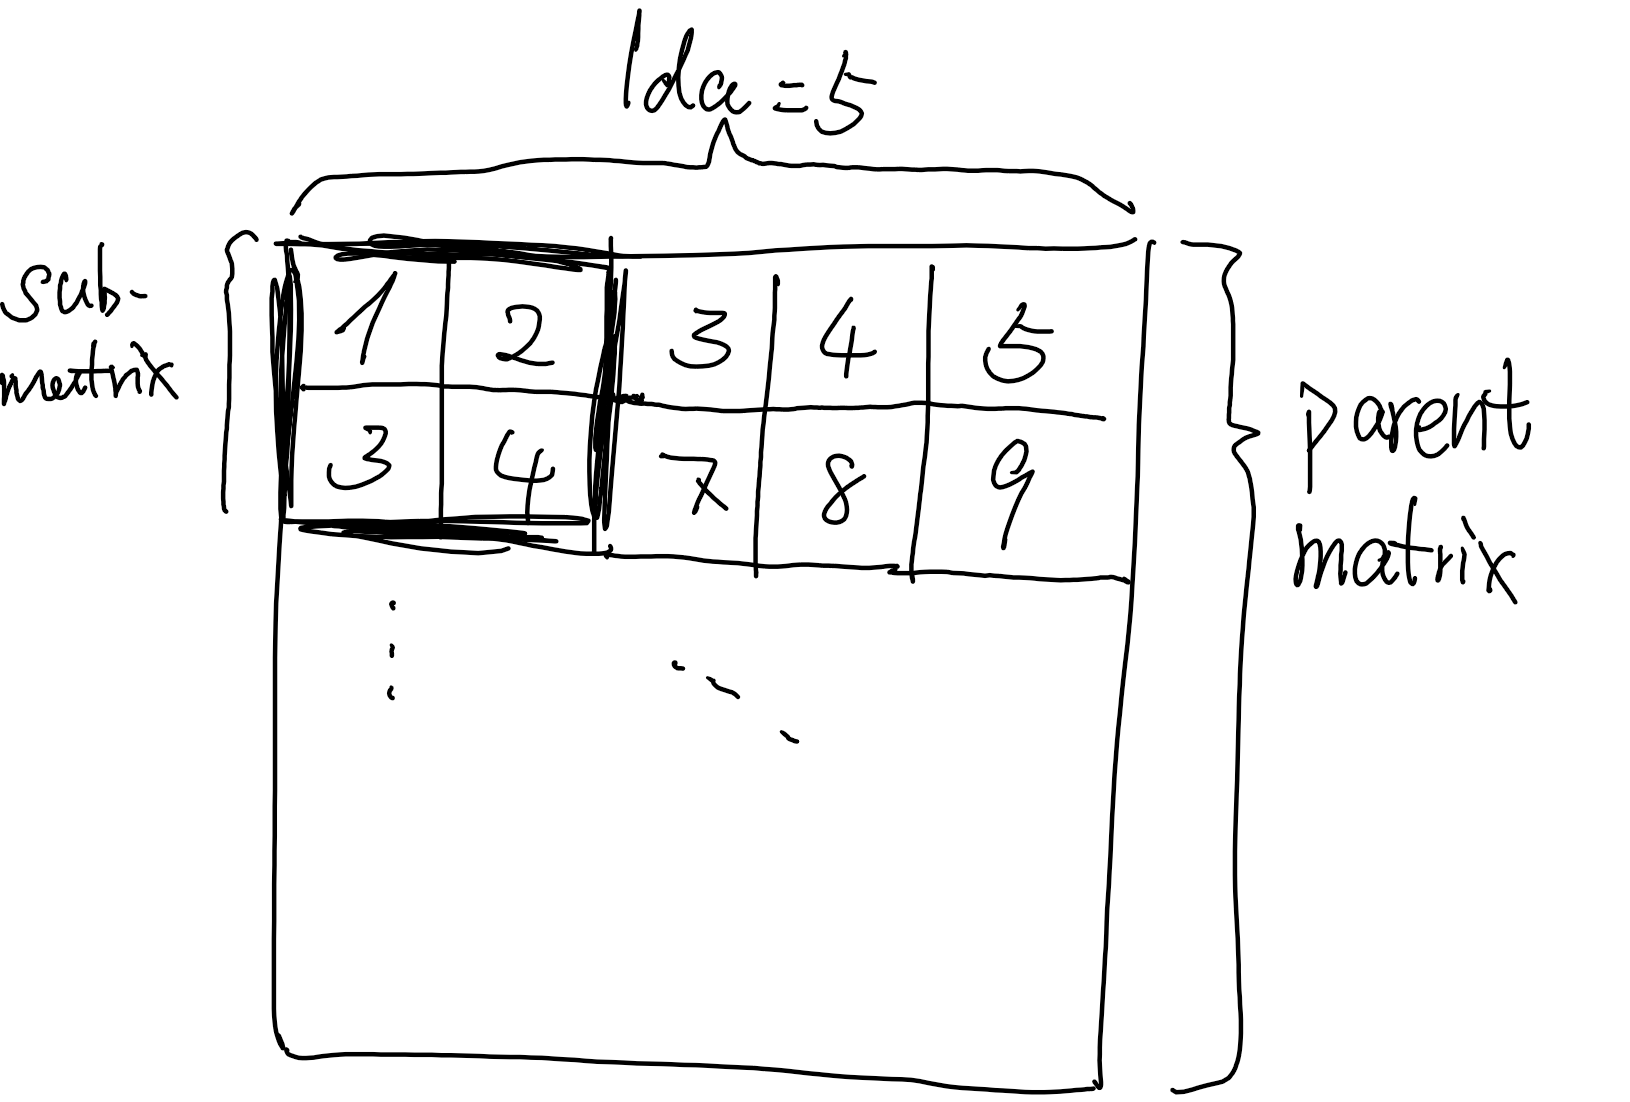 lda = 5
sub-
matrix
1 2 3 4 5
3 4 7 8 9
parent
matrix